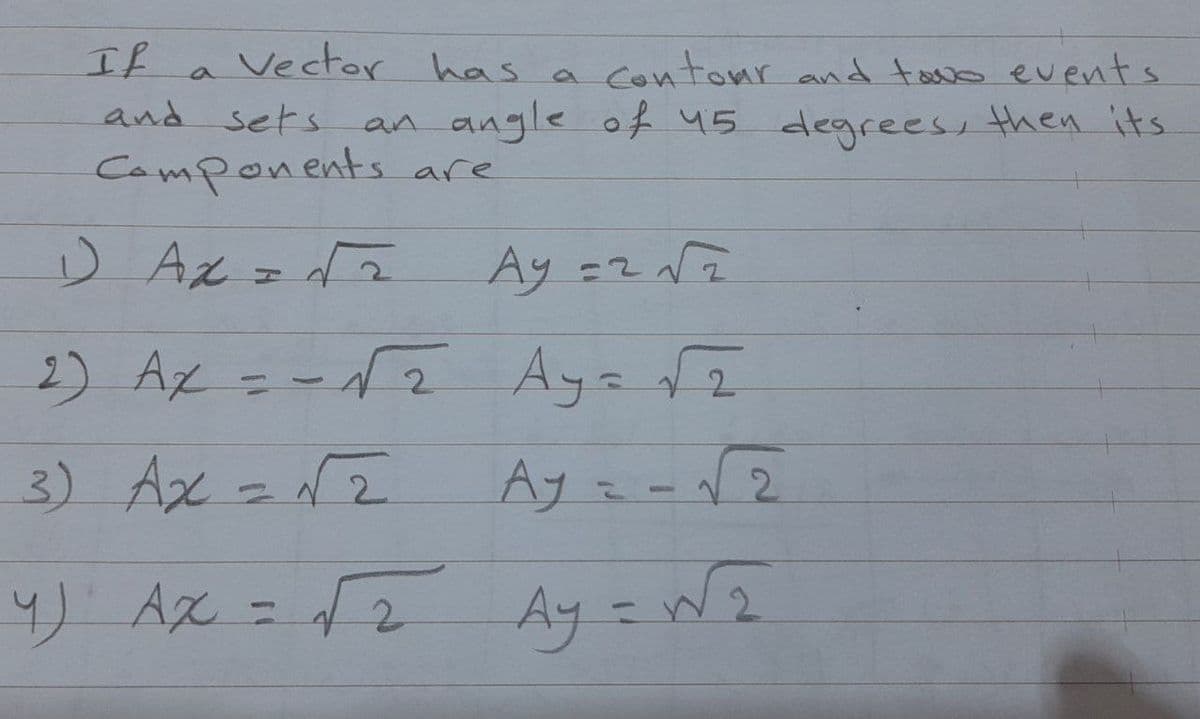 If a vector has a contour and two events
and sets an angle of 45 degrees, then its
Components are
1) Ax = √2 Ay = 2√2
2) Ax = -√2 Ay = √2
3) Ax = √2 Ay = -√2
4) Ax = √2 Ay = √2